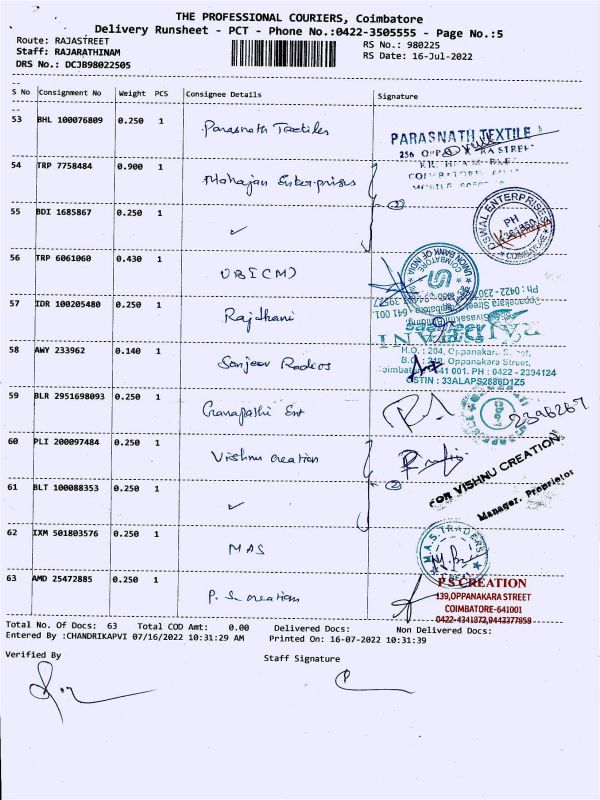 THE PROFESSIONAL COURIERS, Coimbatore
Delivery Runsheet - PCT - Phone No.:0422-3505555 - Page No.:5
Route: RAJASTREET
Staff: RAJARATHINAM
DRS No.: DCJB98022505
RS No.: 980225
RS Date: 16-Jul-2022
S No Consignment No Weight PCS Consignee Details Signature
53 BHL 100076809 0.250 1 Parasnath Textiles
PARASNATH TEXTILE
54 TRP 7758484 0.900 1 Mahajan Enterprises
2
55 BDI 1685867 0.250 1 ✓
OSWAL ENTERPRISES
PH
COIMBATORE
56 TRP 6061060 0.430 1 UBI (CM)
UNION BANK OF INDIA
57 IDR 100205480 0.250 1 Rajdhani
58 AWY 233962 0.140 1 Sanjeev Radios
H.O. : 204, Oppanakara Street,
Oppanakara Street,
641 001. PH : 0422 - 2394124
GSTIN : 33ALAPS2886D1Z5
59 BLR 2951698093 0.250 1 Ganapathi Ent
2396267
60 PLI 200097484 0.250 1 Vishnu creation
2
FOR VISHNU CREATION
Manager. Proprietor
61 BLT 100088353 0.250 1 ✓
62 IXM 501803576 0.250 1 MAS
M.A.S. TRADERS
63 AMD 25472885 0.250 1 P. S. creations
P S CREATION
139,OPPANAKARA STREET
COIMBATORE-641001
0422-4341372,9443377858
Total No. Of Docs: 63 Total COD Amt: 0.00 Delivered Docs: Non Delivered Docs:
Entered By :CHANDRIKAPVI 07/16/2022 10:31:29 AM Printed On: 16-07-2022 10:31:39
Verified By
Staff Signature